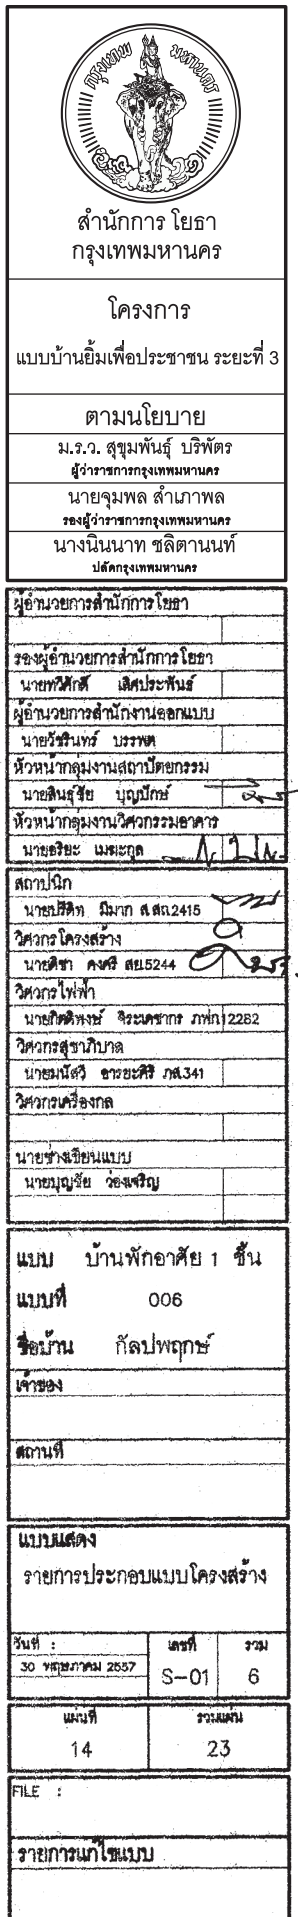 กรุงเทพ มหานคร
สำนักการโยธา
กรุงเทพมหานคร
โครงการ
แบบบ้านยิ้มเพื่อประชาชน ระยะที่ 3
ตามนโยบาย
ม.ร.ว. สุขุมพันธุ์ บริพัตร
ผู้ว่าราชการกรุงเทพมหานคร
นายจุมพล สำเภาพล
รองผู้ว่าราชการกรุงเทพมหานคร
นางนินนาท ชลิตานนท์
ปลัดกรุงเทพมหานคร
ผู้อำนวยการสำนักการโยธา
รองผู้อำนวยการสำนักการโยธา
นายทวีศักดิ์ เลิศประพันธ์
ผู้อำนวยการสำนักงานออกแบบ
นายวัชรินทร์ บรรพต
หัวหน้ากลุ่มงานสถาปัตยกรรม
นายสินธุ์ชัย บุญปักษ์
หัวหน้ากลุ่มงานวิศวกรรมอาคาร
นายอริยะ เมฆะกุล
สถาปนิก
นายปรีดิท มีมาก ส.สถ.2415
วิศวกรโครงสร้าง
นายศิชา คงศรี สย.5244
วิศวกรไฟฟ้า
นายกิตติพงษ์ จิระเดชากร ภฟก.12282
วิศวกรสุขาภิบาล
นายมนัสวี อารยะศิริ ภส.341
วิศวกรเครื่องกล
นายช่างเขียนแบบ
นายบุญชัย ว่องเจริญ
แบบ บ้านพักอาศัย 1 ชั้น
แบบที่ 006
ชื่อบ้าน กัลปพฤกษ์
เจ้าของ
สถานที่
แบบแสดง
รายการประกอบแบบโครงสร้าง
วันที่ : เลขที่ รวม
30 พฤษภาคม 2557 S-01 6
แผ่นที่ รวมแผ่น
14 23
FILE :
รายการแก้ไขแบบ